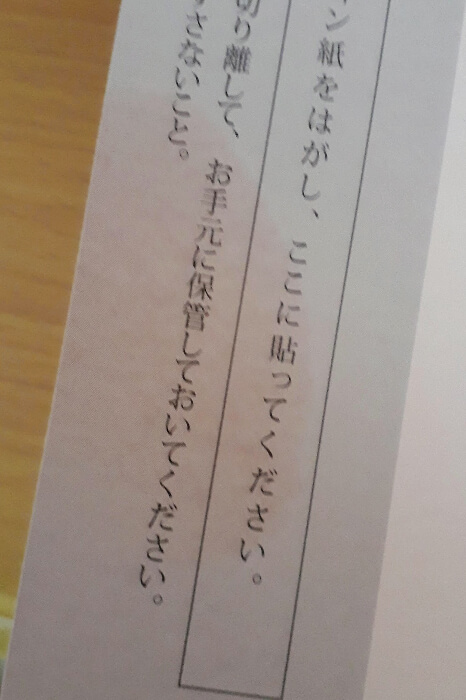 ン紙をはがし、ここに貼ってください。
切り離して、お手元に保管しておいてください。
さないこと。